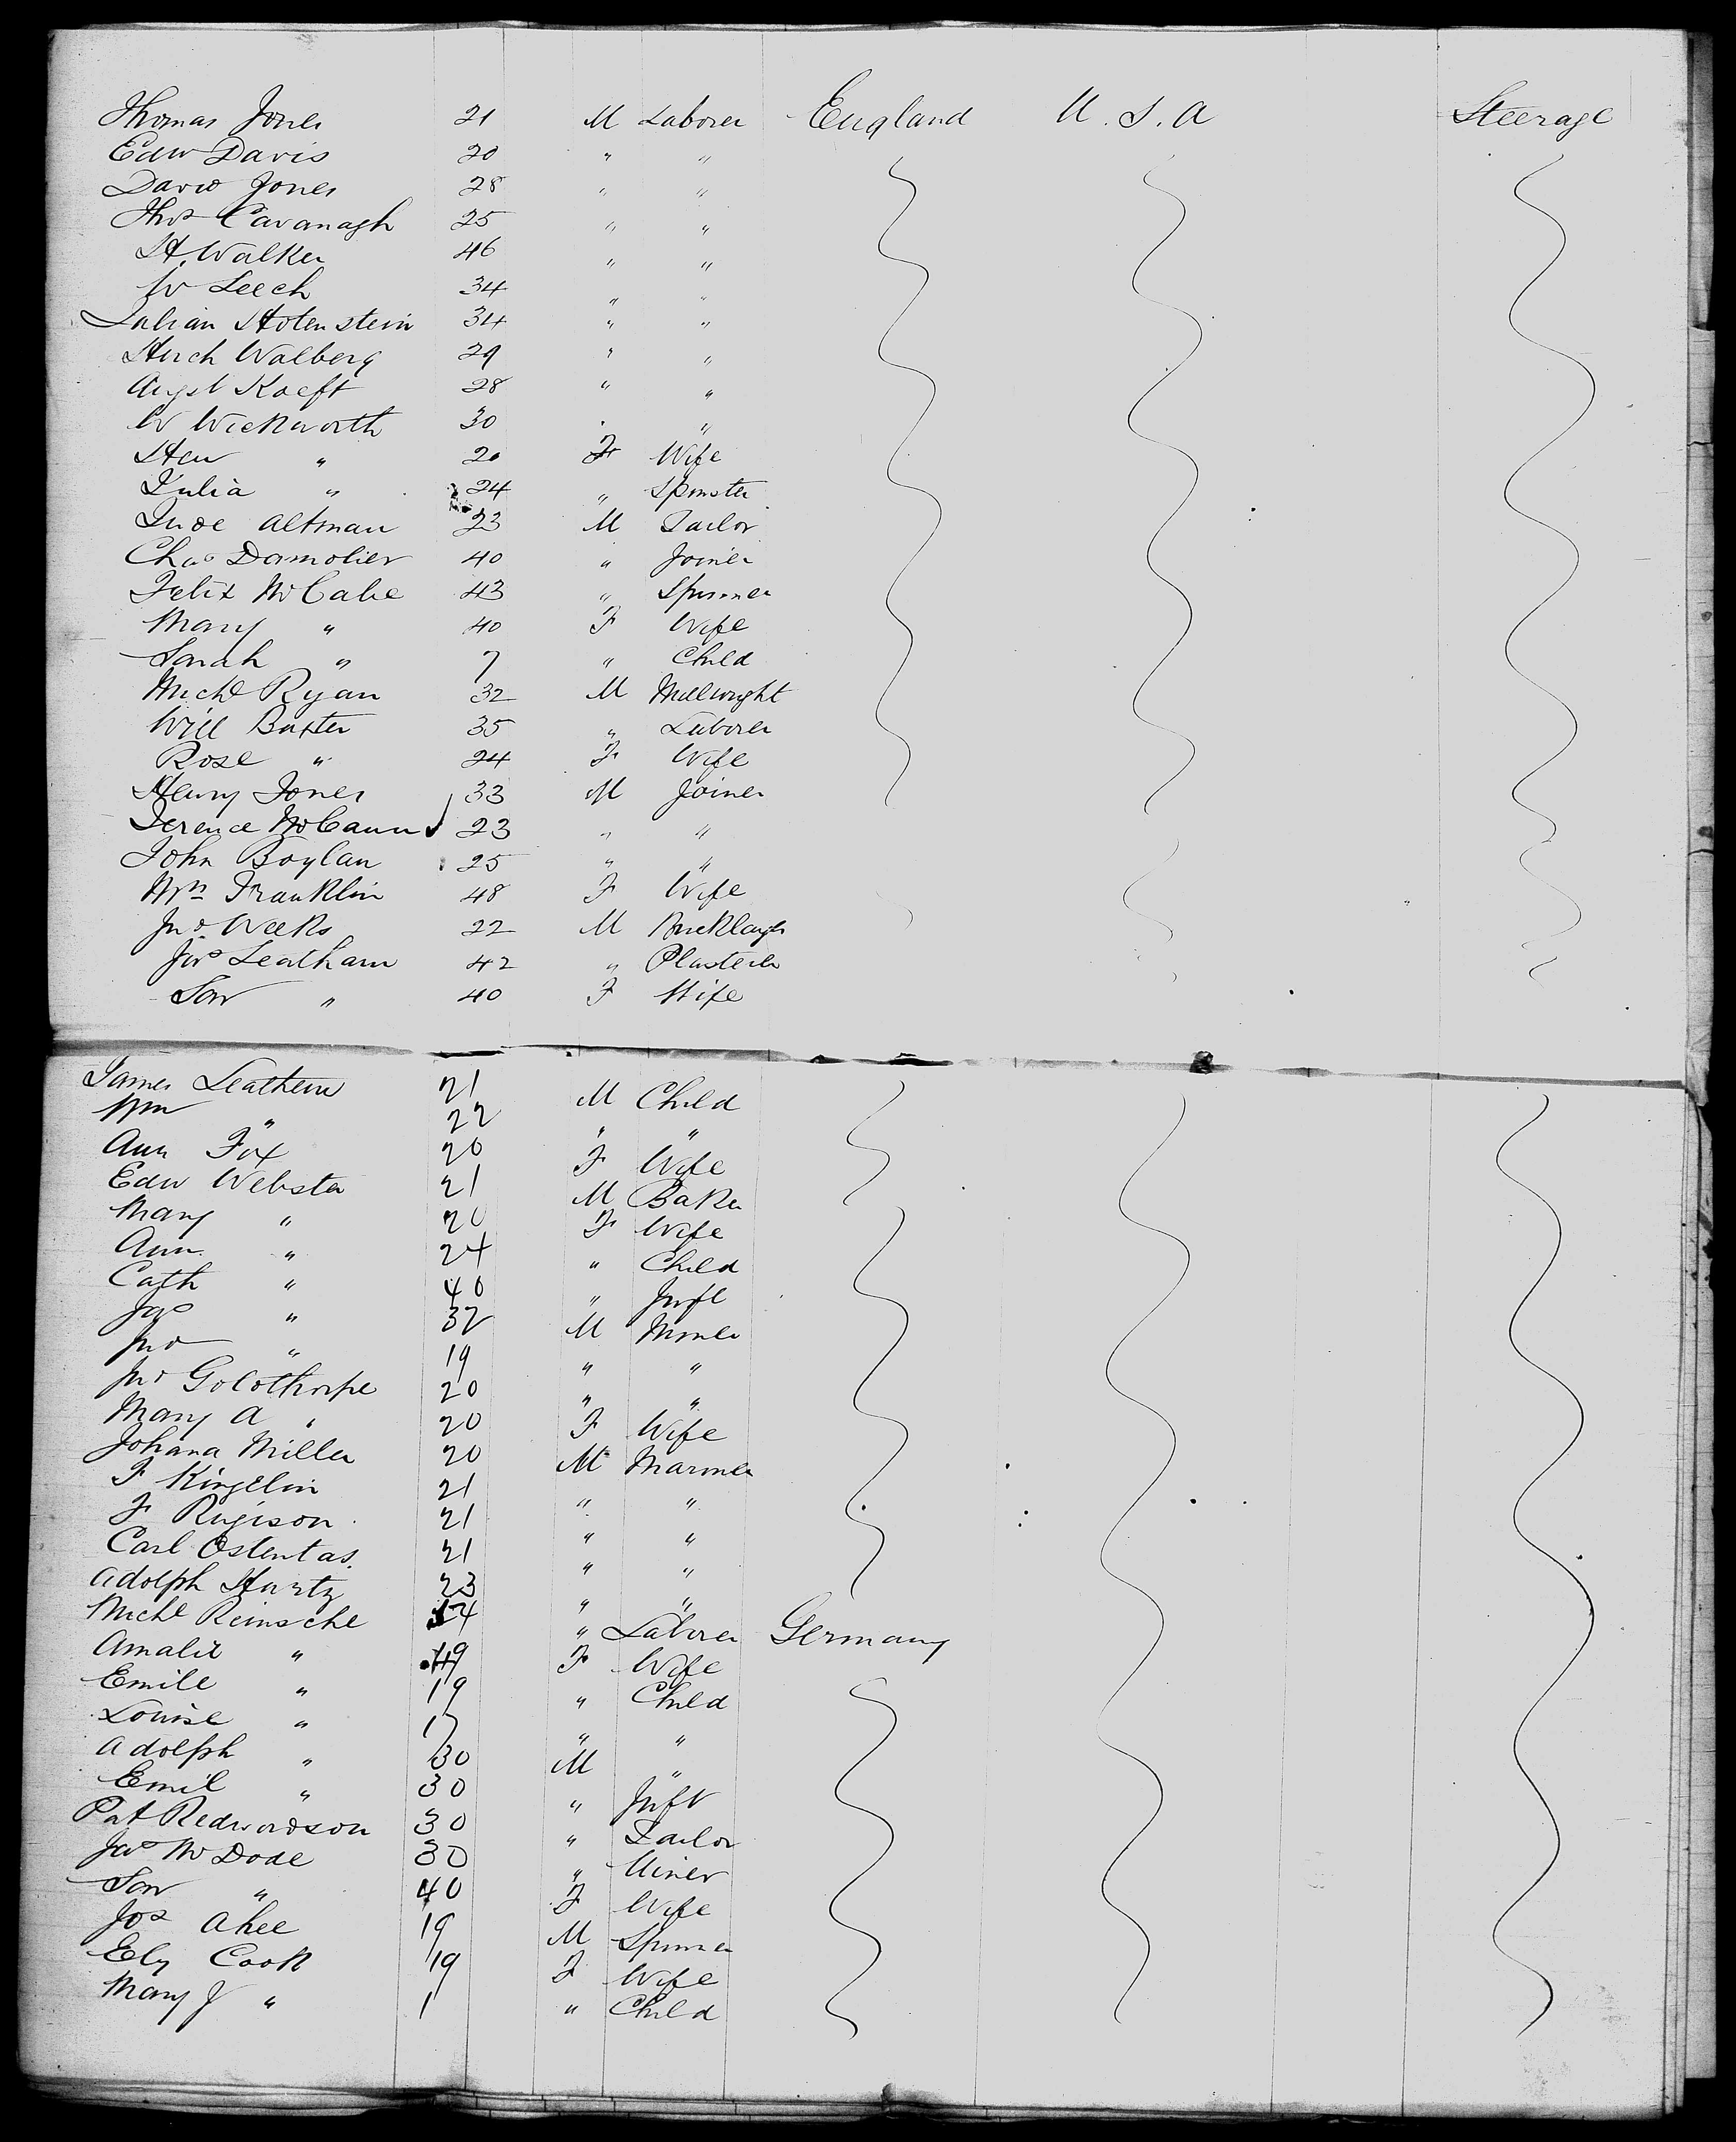 Thomas Jones 21 M Laborer England U.S.A Steerage
Edw Davis 20 " "
David Jones 28 " "
Thos Cavanagh 25 " "
H. Walker 46 " "
W Leech 34 " "
Julian Hotenstein 34 " "
Hirch Walberg 29 " "
Augst Kaeft 28 " "
W Wickworth 30 " "
Hen " 20 F Wife
Julia " 24 " Spinster
Jude Altman 23 M Tailor
Chas Damolier 40 " Joiner
Felix McCabe 43 " Spinner
Mary " 40 F Wife
Sarah " 7 " Child
Michl Ryan 32 M Millwright
Will Baxter 35 " Laborer
Rose " 24 F Wife
Henry Jones 33 M Joiner
Terence McCann 23 " "
John Boylan 25 " "
Mrs Franklin 48 F Wife
Jno Weeks 22 M Bricklayer
Jas Leatham 42 " Plasterer
Sar " 40 F Wife
James Leathem 21 M Child
Wm " 22 " "
Ann Fox 20 F Wife
Edw Webster 21 M Baker
Mary " 20 F Wife
Ann " 24 " Child
Cath " 40 " Inft
Jas " 32 M Miner
Jno " 19 " "
Jno Goldthorpe 20 " "
Mary A " 20 F Wife
Johana Miller 20 M Mariner
F Kingelin 21 " "
F Rugison 21 " "
Carl Ostentas. 21 " "
Adolph Hartz 23 " "
Michl Reinsche " Laborer Germany
Amalie " F Wife
Emile " 19 " Child
Louise " 17 " "
Adolph " 30 M "
Emil " 30 " Inft
Pat Redwordson 30 " Tailor
Jas McDode 30 " Miner
Sar " 40 F Wife
Jos Ahee 19 M Spinner
Ely Cook 19 F Wife
Mary J " 1 " Child